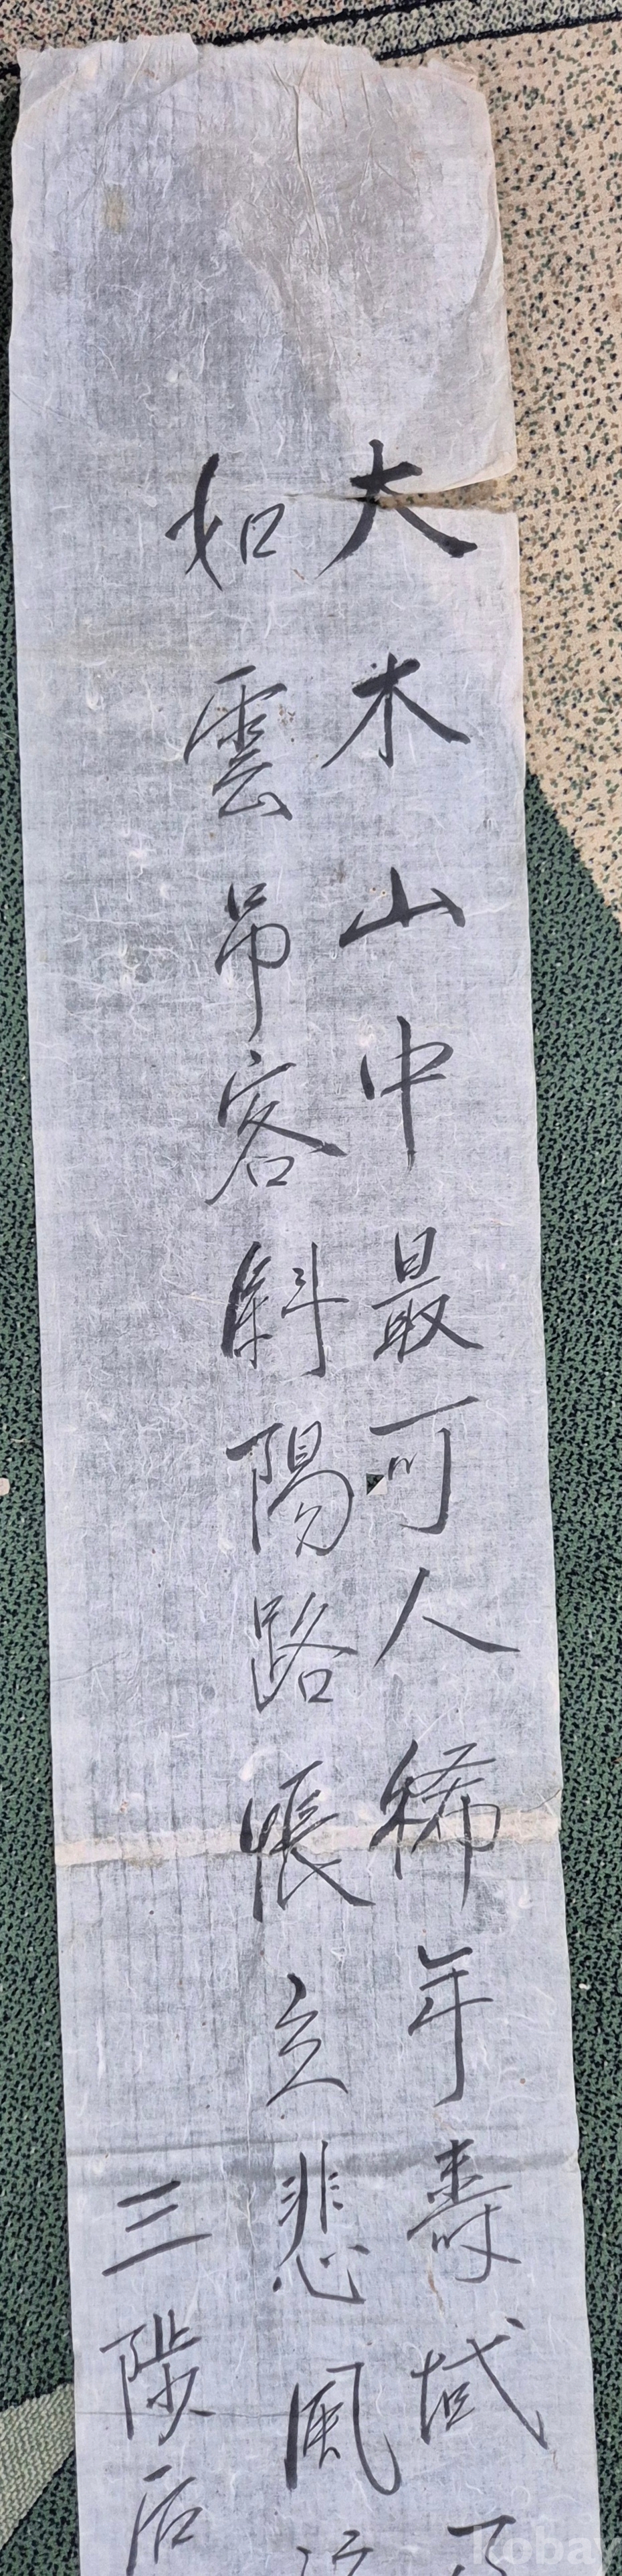 大木山中最可人稀年壽域
如雲吊客斜陽路悵立悲風
三陟后
Kobay